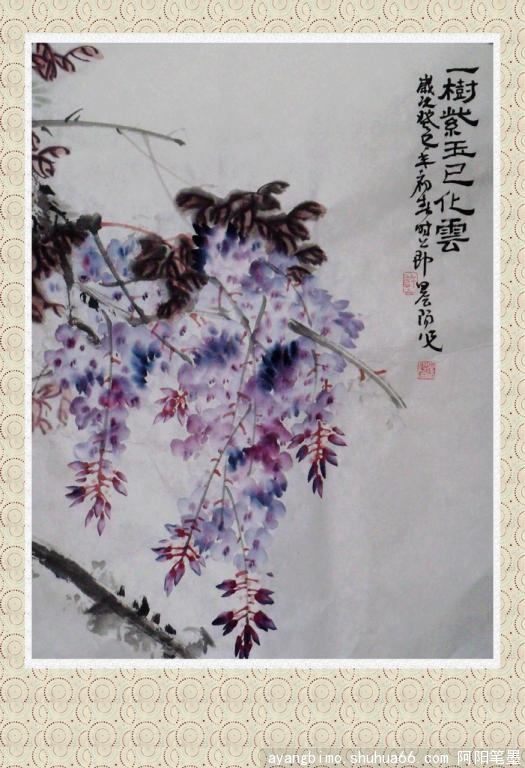 一樹紫玉已化雲
歲次癸巳年初春時
ayangbimo.shuhua66.com 阿阳笔墨